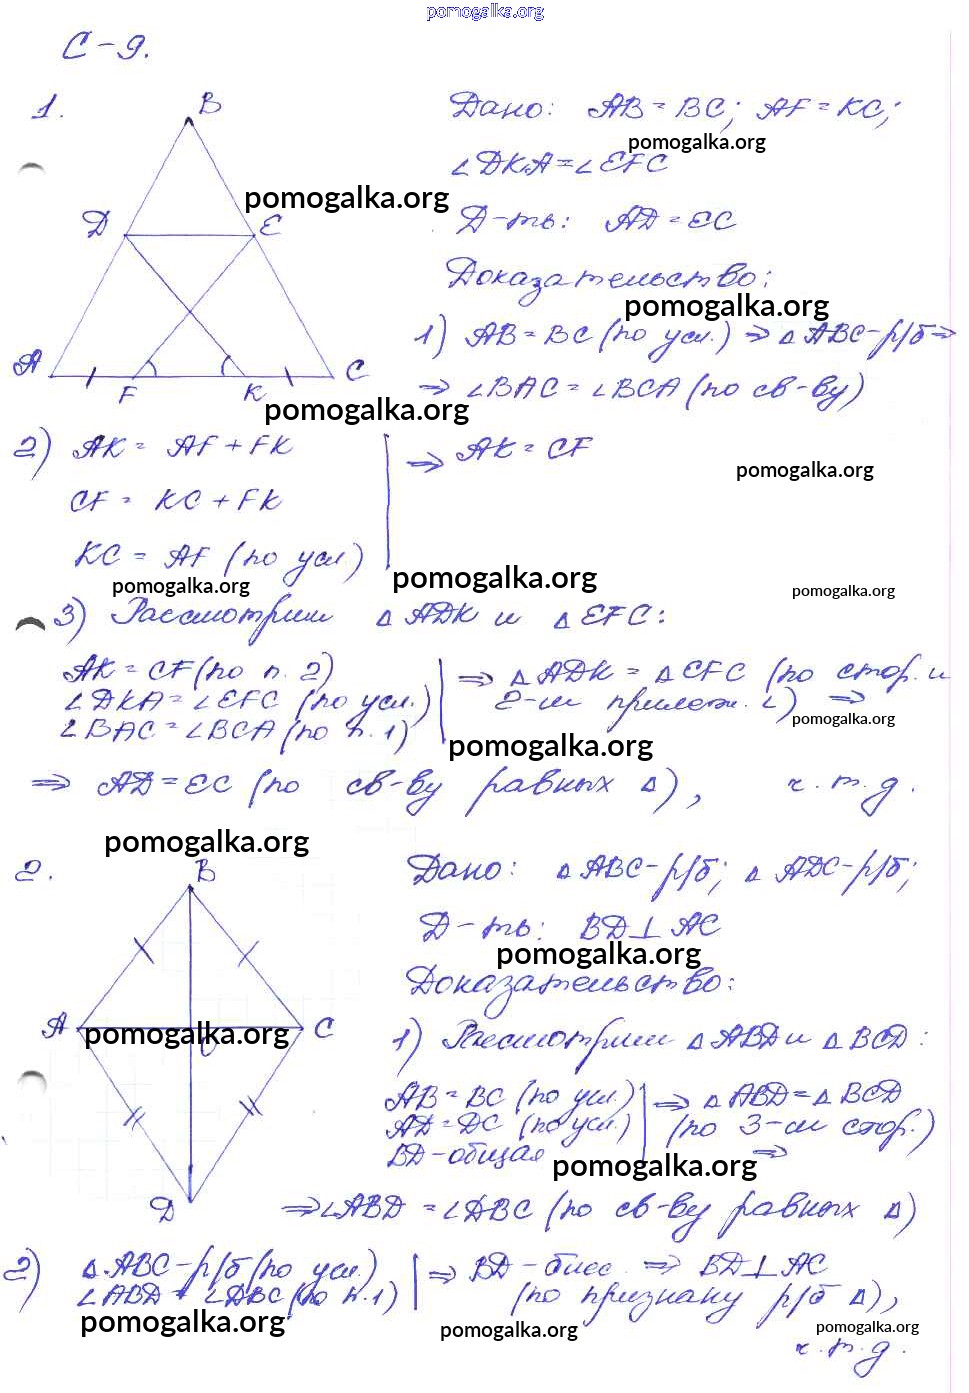 pomogalka.org
С-9.
1.
B
D
E
A
F
K
C
Дано: AB = BC; AF = KC;
pomogalka.org
∠DKA = ∠EFC
pomogalka.org
Д-ть: AD = EC
Доказательство:
pomogalka.org
1) AB = BC (по усл.) ⇒ △ABC-р/б ⇒
⇒ ∠BAC = ∠BCA (по св-ву)
pomogalka.org
2) AK = AF + FK
⇒ AK = CF
pomogalka.org
CF = KC + FK
KC = AF (по усл)
pomogalka.org
pomogalka.org
pomogalka.org
3) Рассмотрим △ADK и △EFC:
AK = CF (по п. 2)
∠DKA = ∠EFC (по усл.)
∠BAC = ∠BCA (по п.1)
⇒ △ADK = △CFC (по стор. и
2-м прилеж. ∠) ⇒
pomogalka.org
pomogalka.org
⇒ AD = EC (по св-ву равных △), ч.т.д.
pomogalka.org
2.
B
A
C
O
D
pomogalka.org
Дано: △ABC-р/б; △ADC-р/б;
Д-ть: BD⊥AC
pomogalka.org
Доказательство:
1) Рассмотрим △ABD и △BCD:
AB = BC (по усл)
AD = DC (по усл.)
BD-общая
⇒ △ABD = △BCD
(по 3-м стор.)
⇒
pomogalka.org
⇒ ∠ABD = ∠DBC (по св-ву равных △)
2) △ABC-р/б (по усл.)
∠ABD = ∠DBC (по п.1)
⇒ BD-бисс. ⇒ BD⊥AC
(по признаку р/б △),
pomogalka.org
pomogalka.org
pomogalka.org
ч.т.д.